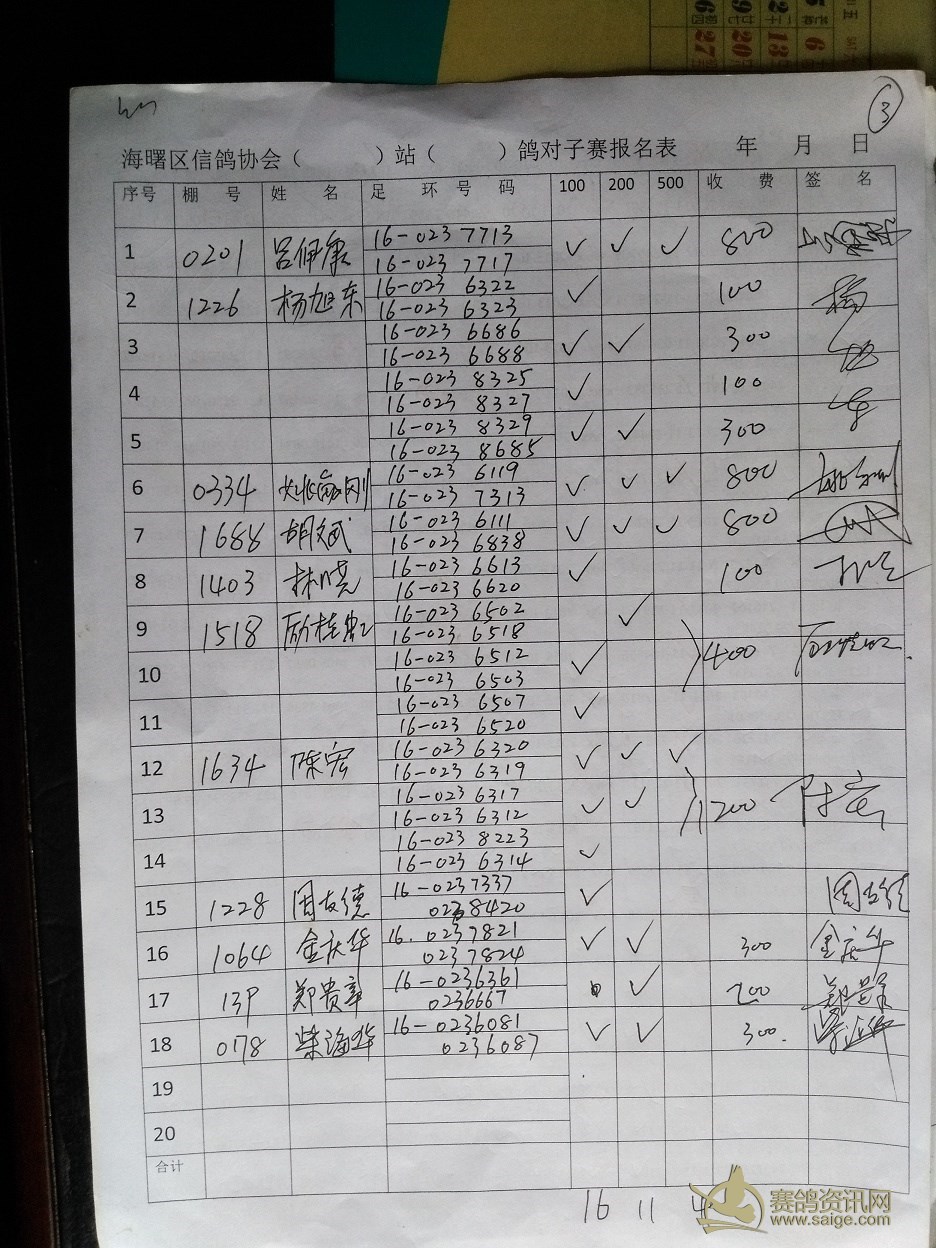 ③
海曙区信鸽协会（ ）站（ ）鸽对子赛报名表 年 月 日
序号 棚 号 姓 名 足 环 号 码 100 200 500 收 费 签 名
16-023 7713
1 0201 吕伊康 ✓ ✓ ✓ 800
16-023 7717
16-023 6322
2 1226 杨旭东 ✓ 100 杨
16-023 6323
16-023 6686
3 ✓ ✓ 300
16-023 6688
16-023 8325
4 ✓ 100
16-023 8327
16-023 8329
5 ✓ ✓ 300
16-023 8685
16-023 6119
6 0334 ✓ ✓ ✓ 800
16-023 7313
16-023 6111
7 1688 胡文武 ✓ ✓ ✓ 800
16-023 6838
16-023 6613
8 1403 林晓 ✓ 100
16-023 6620
16-023 6502
9 1518 ✓
16-023 6518
16-023 6512
10 ✓ 400
16-023 6503
16-023 6507
11 ✓
16-023 6520
16-023 6320
12 1634 陈宏 ✓ ✓ ✓
16-023 6319
16-023 6317
13 ✓ ✓ 1200 陈宏
16-023 6312
16-023 8223
14 ✓
16-023 6314
16-0237337
15 1228 周友德 ✓ 周友德
0238420
16.0237821
16 1064 金庆华 ✓ ✓ 300 金庆华
0237824
16-0236361
17 郑贵章 ✓ 200
0236667
16-0236081
18 0178 ✓ ✓ 300.
0236087
19
20
合计
16 11 4
赛鸽资讯网
www.saige.com